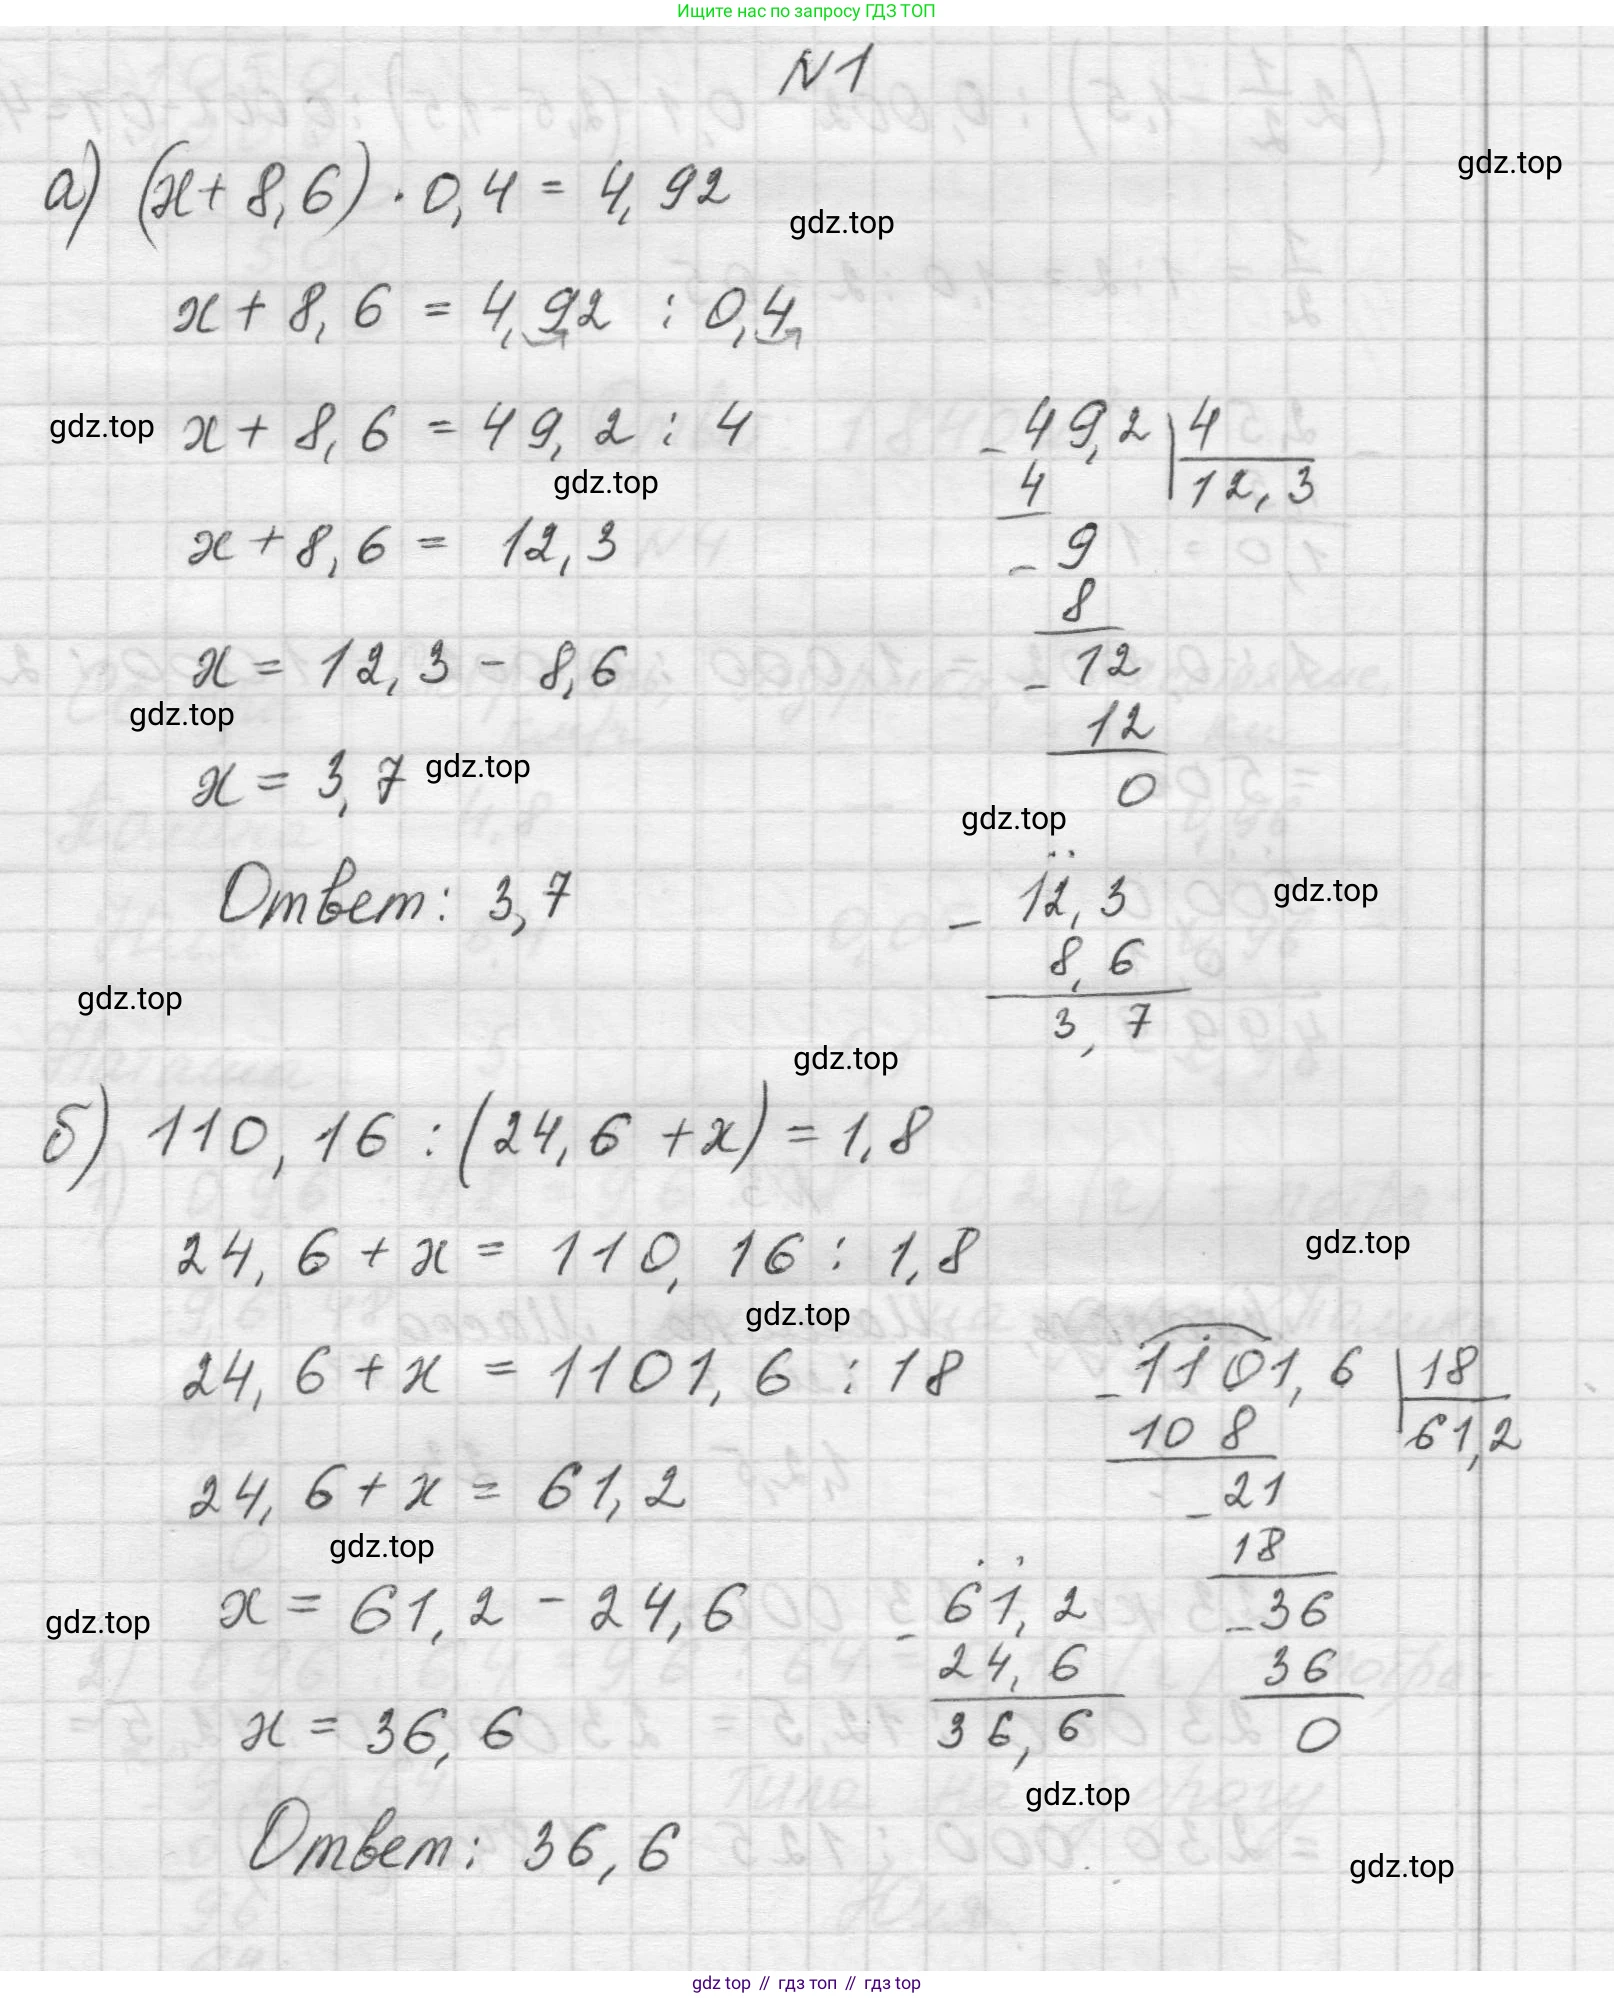 Ищите нас по запросу ГДЗ ТОП
N1
gdz.top
а) (x + 8,6) · 0,4 = 4,92
gdz.top
x + 8,6 = 4,92 : 0,4
gdz.top
x + 8,6 = 49,2 : 4
gdz.top
x + 8,6 = 12,3
x = 12,3 - 8,6
gdz.top
x = 3,7
gdz.top
Ответ: 3,7
- 49,2 | 4
4
12,3
- 9
8
- 12
12
0
gdz.top
- 12,3
gdz.top
8,6
3,7
gdz.top
gdz.top
б) 110,16 : (24,6 + x) = 1,8
24,6 + x = 110,16 : 1,8
gdz.top
gdz.top
24,6 + x = 1101,6 : 18
24,6 + x = 61,2
gdz.top
x = 61,2 - 24,6
gdz.top
x = 36,6
Ответ: 36,6
- 1101,6 | 18
108
61,2
- 21
18
- 36
36
0
- 61,2
24,6
36,6
gdz.top
gdz.top
gdz top // гдз топ // гдз top